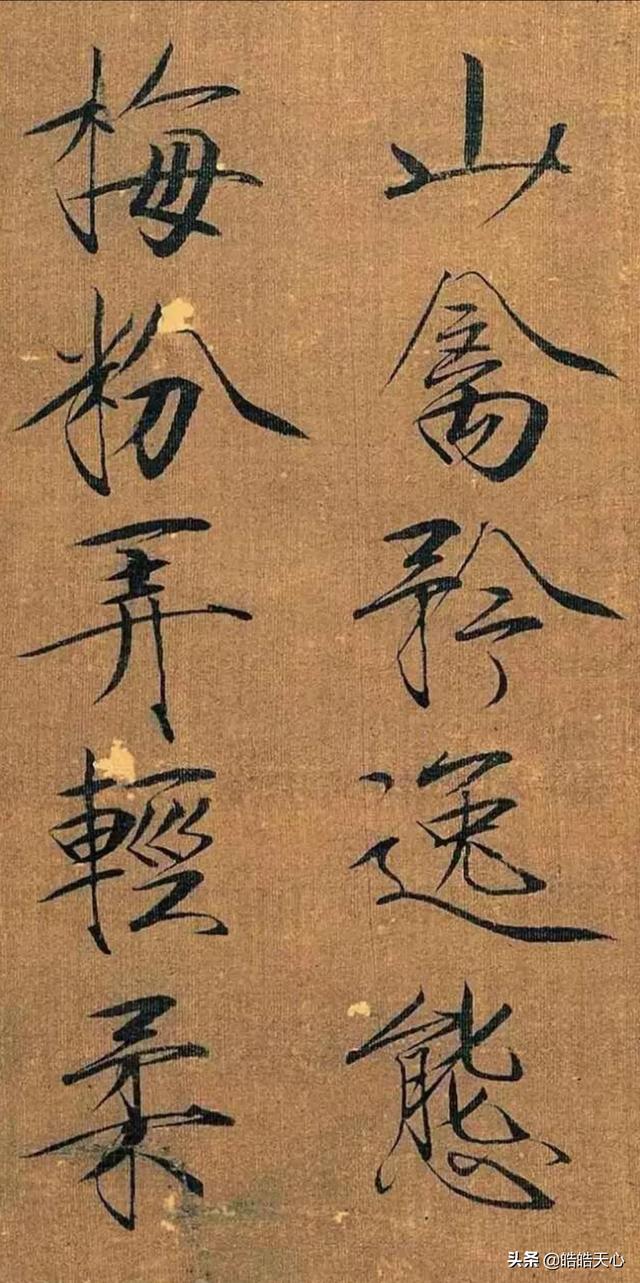 山禽矜逸態
梅粉弄輕柔
头条 @皓皓天心